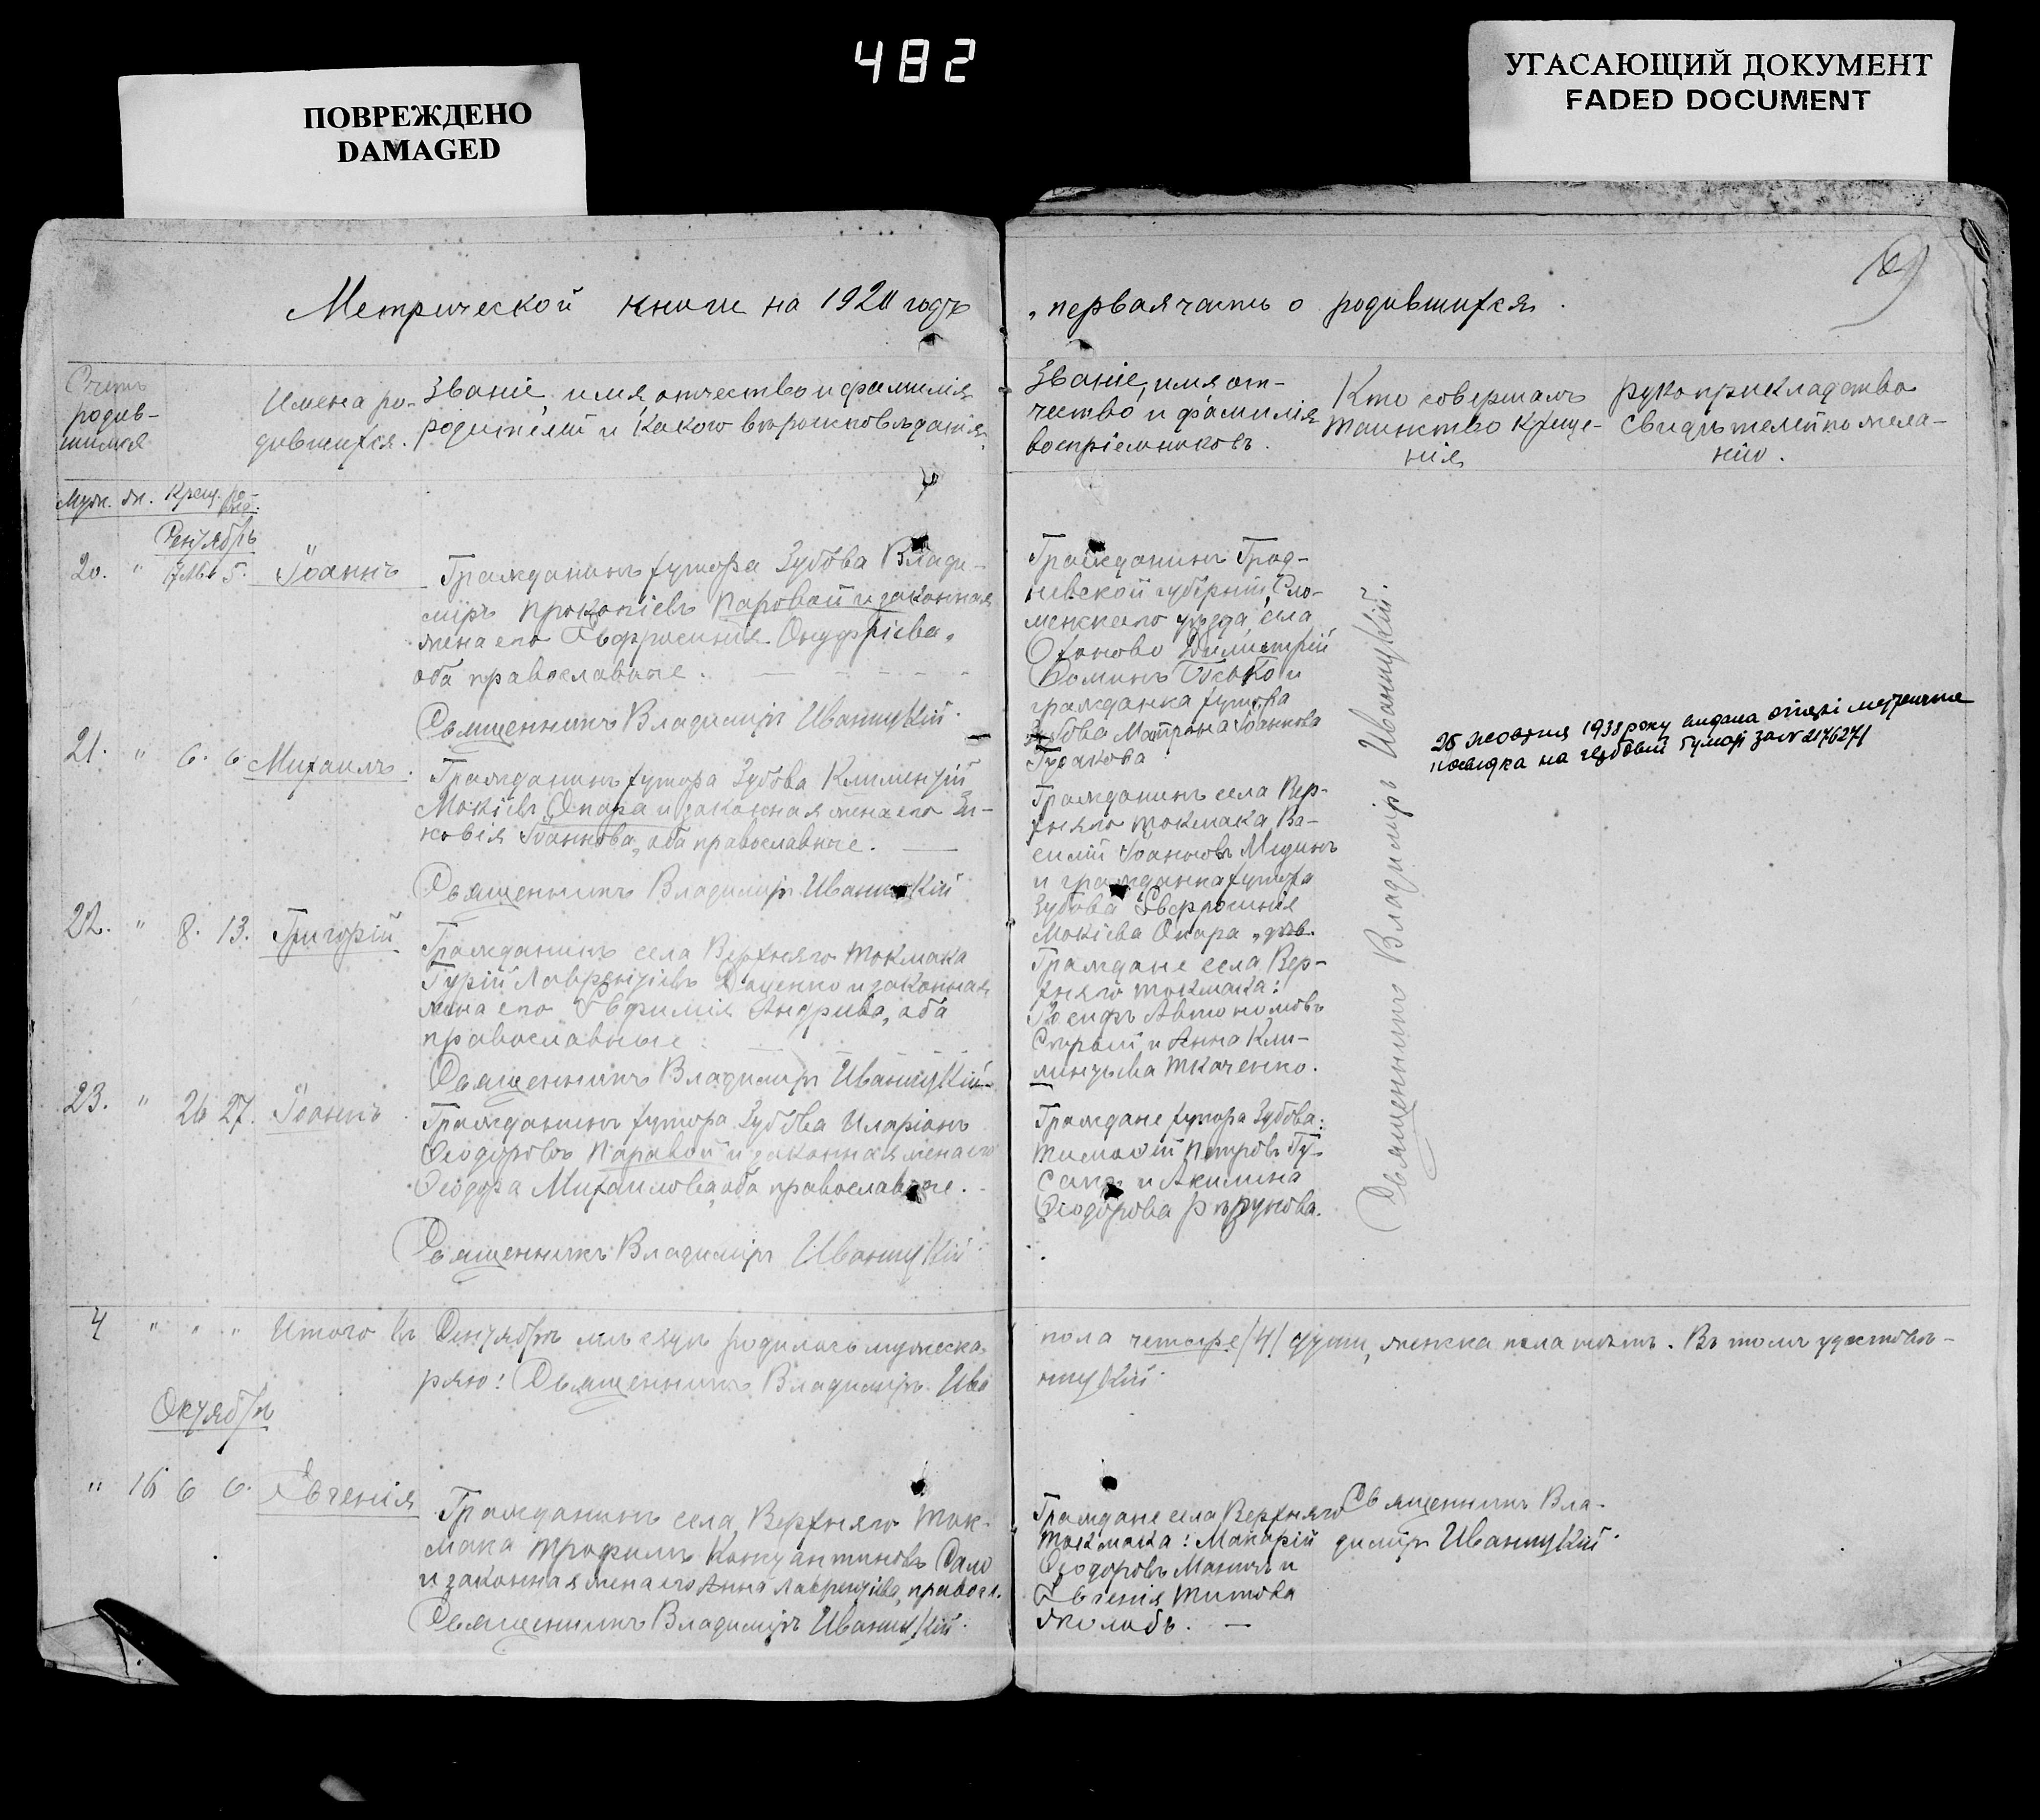 482
ПОВРЕЖДЕНО
DAMAGED
УГАСАЮЩИЙ ДОКУМЕНТ
FADED DOCUMENT
Метрической книги на 1920 годъ
, первая часть о родившихся.
Счетъ
родив-
шихся
Имена ро-
дившихся.
Званіе, имя, отчество и фамилія
родителей и какого вѣроисповѣданія.
Званіе, имя, от-
чество и фамилія
воспріемниковъ.
Кто совершалъ
таинство креще-
нія
рукоприкладство
свидѣтелей по жела-
нію.
Муж. ж. Крещ.
Сентябрь
20. " 5. Іоаннъ
Гражданинъ хутора Зубова Влади-
міръ Прокопіевъ Паровай и законная
жена его Евфросинія Онуфріева,
оба православные.
Священникъ Владиміръ Иваницкій.
Гражданинъ Грод-
ненской губерніи, Сло-
нимскаго уѣзда, села
Охоново Димитрій
Фоминъ и
гражданка хутора
Зубова Матрона Іоаннова
Гусакова
21. " 6. 6 Михаилъ.
Гражданинъ хутора Зубова Климентій
Мокіевъ Опара и законная жена его Зи-
новія Іоаннова, оба православные.
Священникъ Владиміръ Иваницкій
Гражданинъ села Вер-
хняго Токмака, Ва-
силій Іоанновъ Мединъ
и гражданка хутора
Зубова Евфросинія
Мокіева Опара „дѣв.
25 жовтня 1938 року видана
на гербовій № 2176271
22. " 8. 13. Григорій
Гражданинъ села Верхняго Токмака
Гурій Лаврентіевъ Даценко и законная
жена его Евфимія Андреева, оба
православные.
Священникъ Владиміръ Иваницкій
Граждане села Вер-
хняго Токмака:
Іосифъ Автономовъ
и Анна Кли-
ментьева Ткаченко.
23. " 26 27. Іоаннъ.
Гражданинъ хутора Зубова Иларіонъ
Ѳеодоровъ Паравой и законная жена его
Ѳеодора Михаилова, оба православные.
Священникъ Владиміръ Иваницкій
Граждане хутора Зубова:
Тимоѳій Петровъ Гу-
сакъ и Акилина
Ѳеодорова
Священникъ Владиміръ Иваницкій.
4 " " " Итого въ Сентябрѣ мѣсяцѣ родилось мужеска,
пола четыре /4/ души, женска пола нѣтъ. Въ томъ удостовѣ-
ряю: Священникъ Владиміръ Ива
ницкій.
Октябрь
" 16 6 6. Евгенія
Гражданинъ села Верхняго Ток-
мака Трофимъ Константиновъ Сало
и законная жена его Анна Лаврентіева, правосл.
Священникъ Владиміръ Иваницкій.
Граждане села Верхняго
Токмака: Макарій
Ѳеодоровъ и
Евгенія Титова
Священникъ Вла-
диміръ Иваницкій.